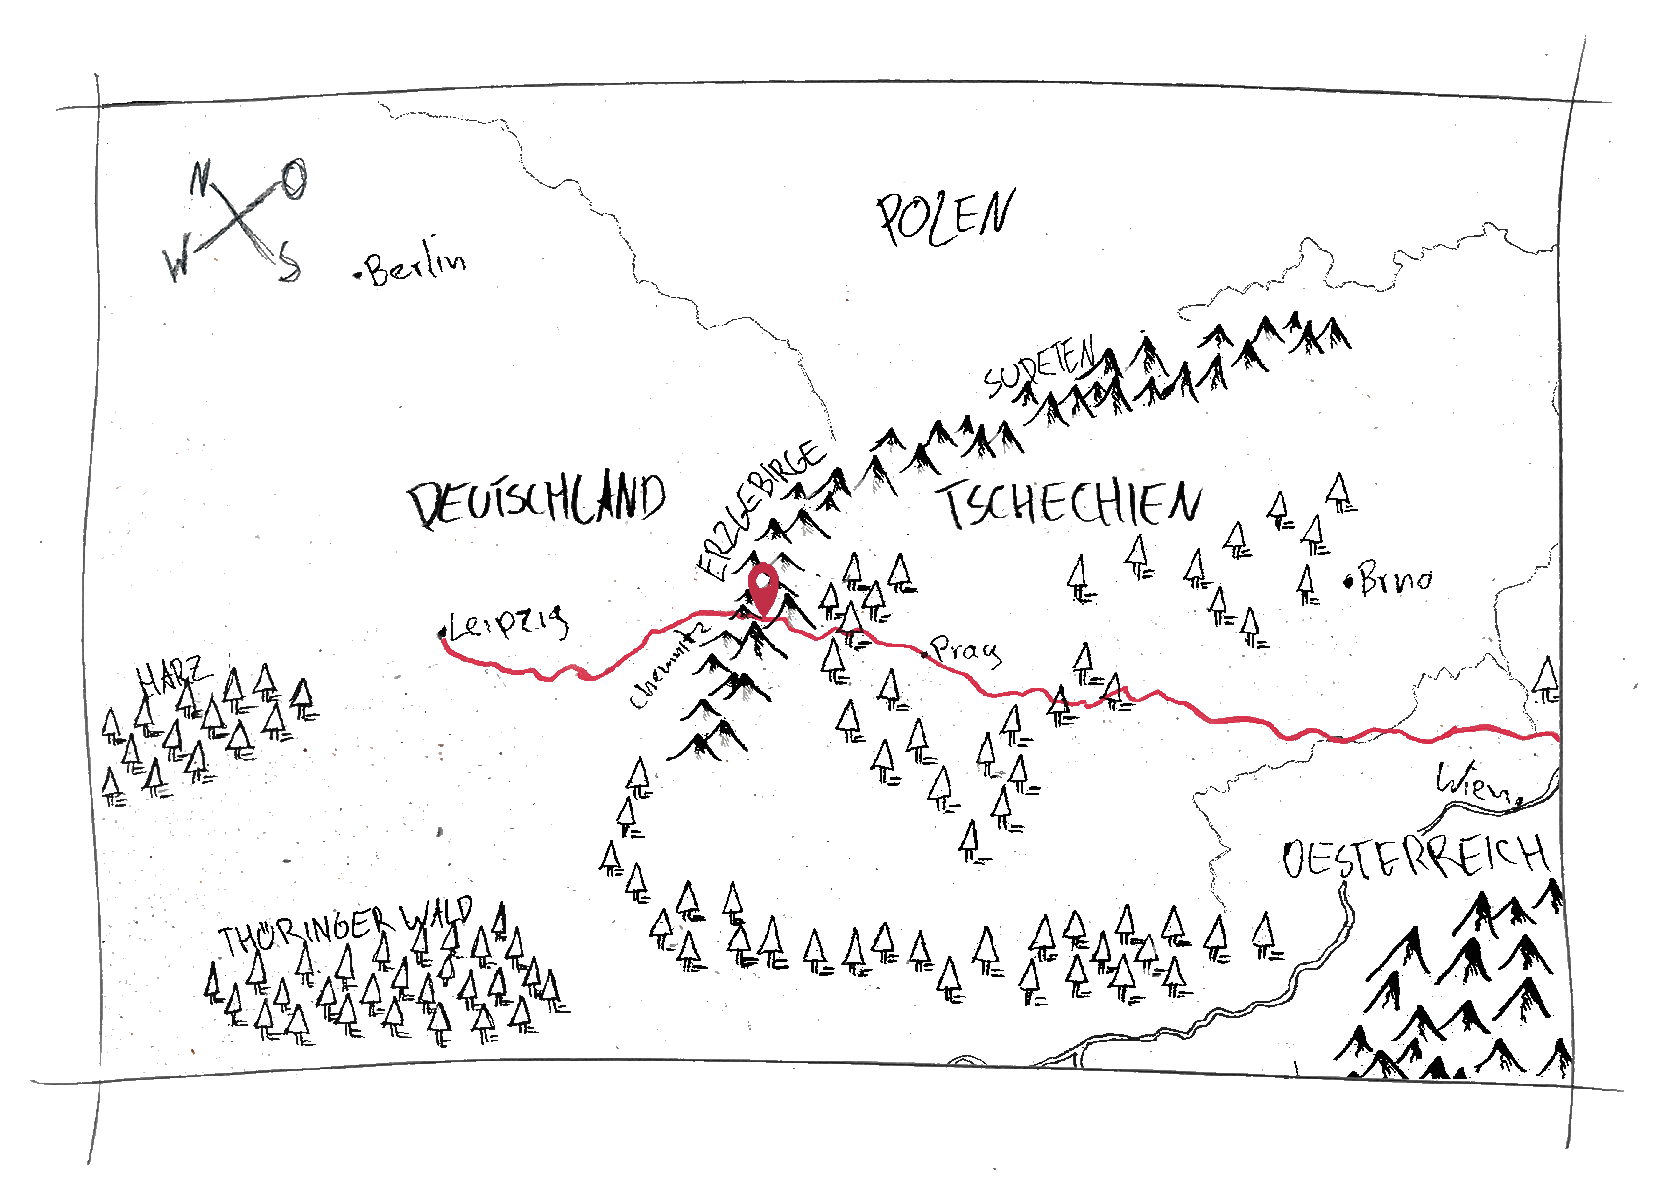 N
O
W
S
Berlin
POLEN
SUDETEN
ERZGEBIRGE
DEUTSCHLAND
TSCHECHIEN
Brno
Leipzig
Chemnitz
Prag
HARZ
Wien
OESTERREICH
THÜRINGER WALD